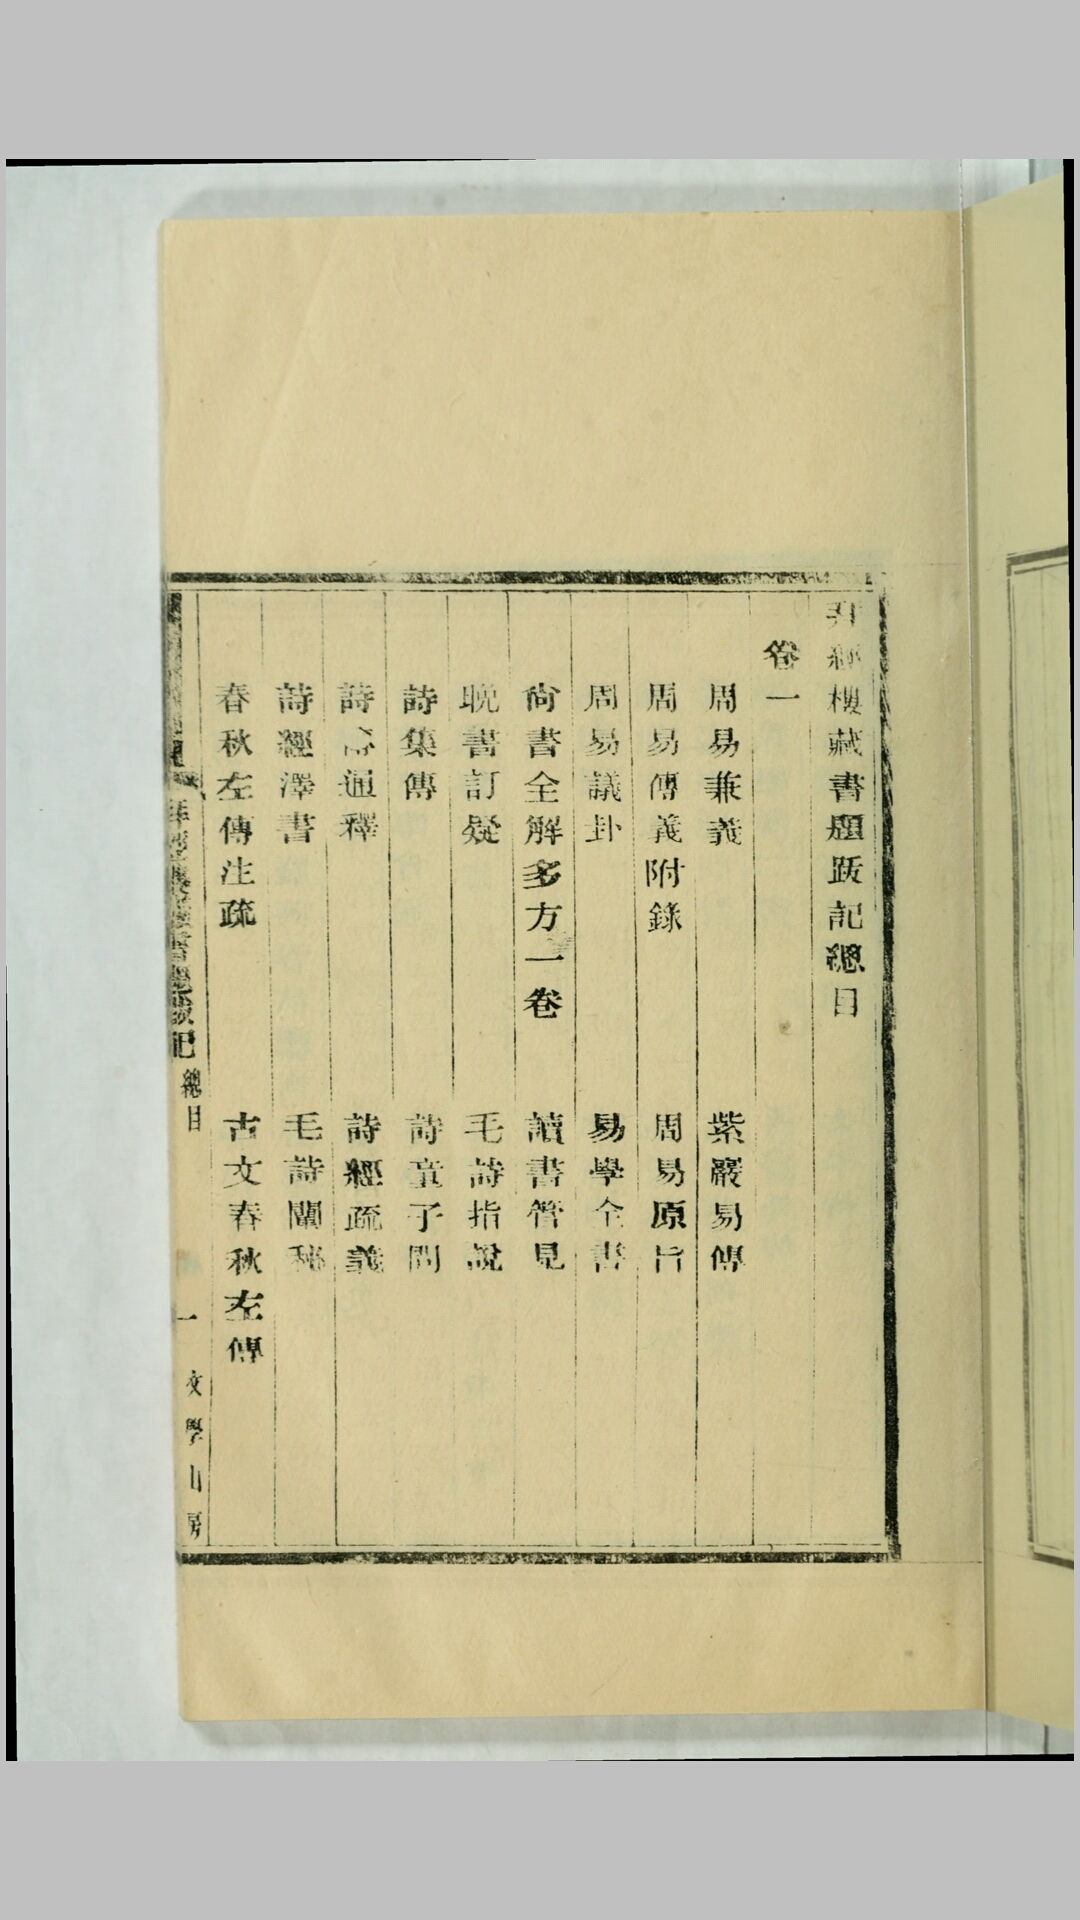 拜經樓藏書題跋記總目
卷一
周易兼義
紫巖易傳
周易傳義附錄
周易原旨
周易議卦
易學全書
尙書全解多方一卷
讀書管見
晚書訂疑
毛詩指說
詩集傳
詩童子問
詩名通釋
詩經疏義
詩經澤書
毛詩闡秘
春秋左傳注疏
古文春秋左傳
拜經樓藏書題跋記
總目
一
文學山房